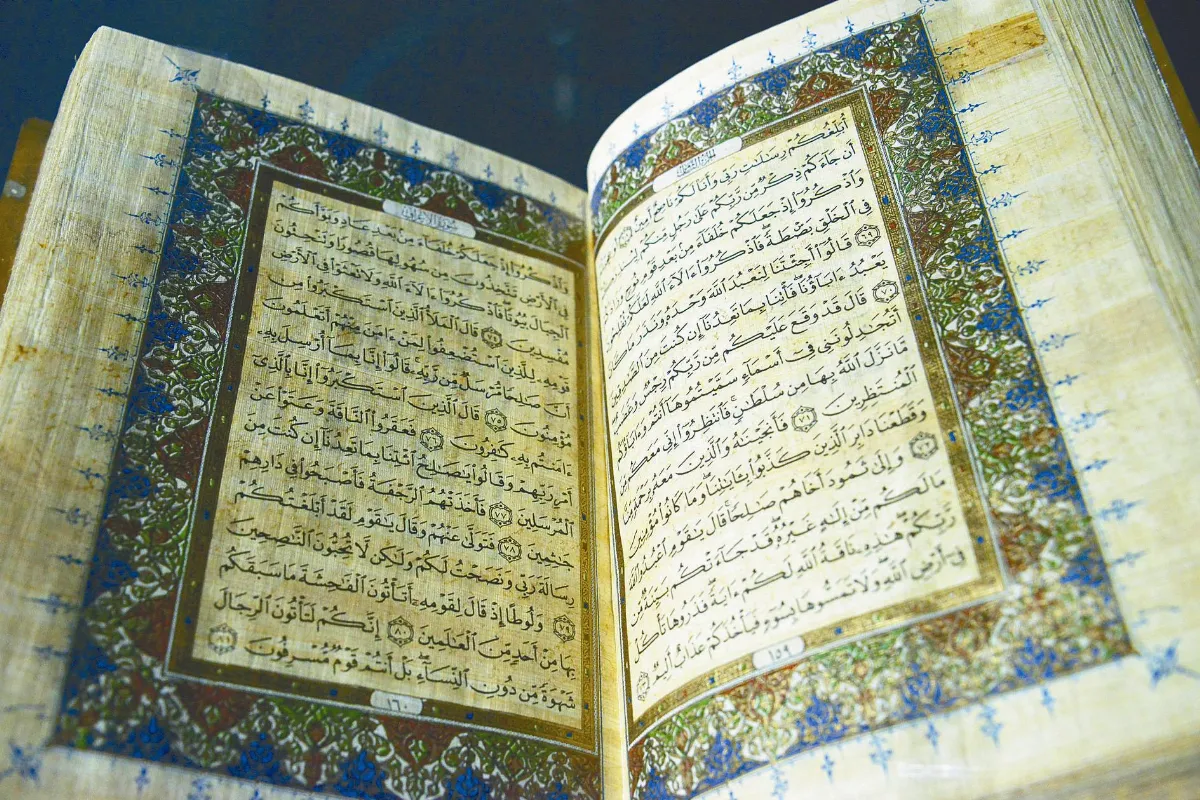 الجزء الثامن
أُبَلِّغُكُمْ رِسَٰلَٰتِ رَبِّي وَأَنَا۠ لَكُمْ نَاصِحٌ أَمِينٌ ٦٨
أَن جَآءَكُمْ ذِكْرٌ مِّن رَّبِّكُمْ عَلَىٰ رَجُلٍ مِّنكُمْ لِيُنذِرَكُمْ
وَٱذْكُرُوٓا۟ إِذْ جَعَلَكُمْ خُلَفَآءَ مِنۢ بَعْدِ قَوْمِ نُوحٍ وَزَادَكُمْ
فِي ٱلْخَلْقِ بَصْۜطَةً فَٱذْكُرُوٓا۟ ءَالَآءَ ٱللَّهِ لَعَلَّكُمْ تُفْلِحُونَ
٦٩ قَالُوٓا۟ أَجِئْتَنَا لِنَعْبُدَ ٱللَّهَ وَحْدَهُۥ وَنَذَرَ مَا كَانَ
يَعْبُدُ ءَابَآؤُنَا فَأْتِنَا بِمَا تَعِدُنَآ إِن كُنتَ مِنَ ٱلصَّٰدِقِينَ
٧٠ قَالَ قَدْ وَقَعَ عَلَيْكُم مِّن رَّبِّكُمْ رِجْسٌ وَغَضَبٌ
أَتُجَٰدِلُونَنِي فِيٓ أَسْمَآءٍ سَمَّيْتُمُوهَآ أَنتُمْ وَءَابَآؤُكُم
مَّا نَزَّلَ ٱللَّهُ بِهَا مِن سُلْطَٰنٍ فَٱنتَظِرُوٓا۟ إِنِّي مَعَكُم
ٱلْمُنتَظِرِينَ ٧١ فَأَنجَيْنَٰهُ وَٱلَّذِينَ مَعَهُۥ بِرَحْمَةٍ مِّنَّا
وَقَطَعْنَا دَابِرَ ٱلَّذِينَ كَذَّبُوا۟ بِـَٔايَٰتِنَا وَمَا كَانُوا۟ مُؤْمِنِينَ
٧٢ وَإِلَىٰ ثَمُودَ أَخَاهُمْ صَٰلِحًا قَالَ يَٰقَوْمِ ٱعْبُدُوا۟ ٱللَّهَ
مَا لَكُم مِّنْ إِلَٰهٍ غَيْرُهُۥ قَدْ جَآءَتْكُم بَيِّنَةٌ مِّن
رَّبِّكُمْ هَٰذِهِۦ نَاقَةُ ٱللَّهِ لَكُمْ ءَايَةً فَذَرُوهَا تَأْكُلْ
فِيٓ أَرْضِ ٱللَّهِ وَلَا تَمَسُّوهَا بِسُوٓءٍ فَيَأْخُذَكُمْ عَذَابٌ أَلِيمٌ ٧٣
١٥٩
سورة الأعراف
وَٱذْكُرُوٓا۟ إِذْ جَعَلَكُمْ خُلَفَآءَ مِنۢ بَعْدِ عَادٍ وَبَوَّأَكُمْ
فِي ٱلْأَرْضِ تَتَّخِذُونَ مِن سُهُولِهَا قُصُورًا وَتَنْحِتُونَ
ٱلْجِبَالَ بُيُوتًا فَٱذْكُرُوٓا۟ ءَالَآءَ ٱللَّهِ وَلَا تَعْثَوْا۟ فِي ٱلْأَرْضِ
مُفْسِدِينَ ٧٤ قَالَ ٱلْمَلَأُ ٱلَّذِينَ ٱسْتَكْبَرُوا۟ مِن
قَوْمِهِۦ لِلَّذِينَ ٱسْتُضْعِفُوا۟ لِمَنْ ءَامَنَ مِنْهُمْ أَتَعْلَمُونَ
أَنَّ صَٰلِحًا مُّرْسَلٌ مِّن رَّبِّهِۦ قَالُوٓا۟ إِنَّا بِمَآ أُرْسِلَ بِهِۦ
مُؤْمِنُونَ ٧٥ قَالَ ٱلَّذِينَ ٱسْتَكْبَرُوٓا۟ إِنَّا بِٱلَّذِيٓ
ءَامَنتُم بِهِۦ كَٰفِرُونَ ٧٦ فَعَقَرُوا۟ ٱلنَّاقَةَ وَعَتَوْا۟ عَنْ
أَمْرِ رَبِّهِمْ وَقَالُوا۟ يَٰصَٰلِحُ ٱئْتِنَا بِمَا تَعِدُنَآ إِن كُنتَ مِنَ
ٱلْمُرْسَلِينَ ٧٧ فَأَخَذَتْهُمُ ٱلرَّجْفَةُ فَأَصْبَحُوا۟ فِي دَارِهِمْ
جَٰثِمِينَ ٧٨ فَتَوَلَّىٰ عَنْهُمْ وَقَالَ يَٰقَوْمِ لَقَدْ أَبْلَغْتُكُمْ
رِسَالَةَ رَبِّي وَنَصَحْتُ لَكُمْ وَلَٰكِن لَّا تُحِبُّونَ ٱلنَّٰصِحِينَ
٧٩ وَلُوطًا إِذْ قَالَ لِقَوْمِهِۦٓ أَتَأْتُونَ ٱلْفَٰحِشَةَ مَا سَبَقَكُم
بِهَا مِنْ أَحَدٍ مِّنَ ٱلْعَٰلَمِينَ ٨٠ إِنَّكُمْ لَتَأْتُونَ ٱلرِّجَالَ
شَهْوَةً مِّن دُونِ ٱلنِّسَآءِ بَلْ أَنتُمْ قَوْمٌ مُّسْرِفُونَ ٨١
١٦٠